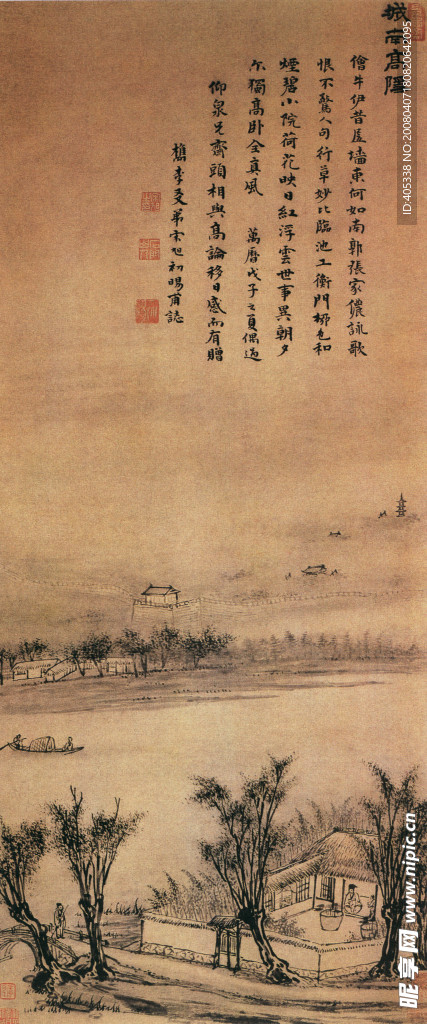 城南高隱
儈牛伊昔居墻東何如南郭張家儂詠歌
恨不驚人句行草妙比臨池工衡門柳色和
煙碧小院荷花映日紅浮雲世事異朝夕
尔獨高卧全真風 萬曆戊子之夏偶過
仰泉兄齋頭相與高論移日感而有贈
檇李友弟宋旭初暘甫誌
ID:405338 NO:20080407180820642095
昵享网 www.nipic.cn